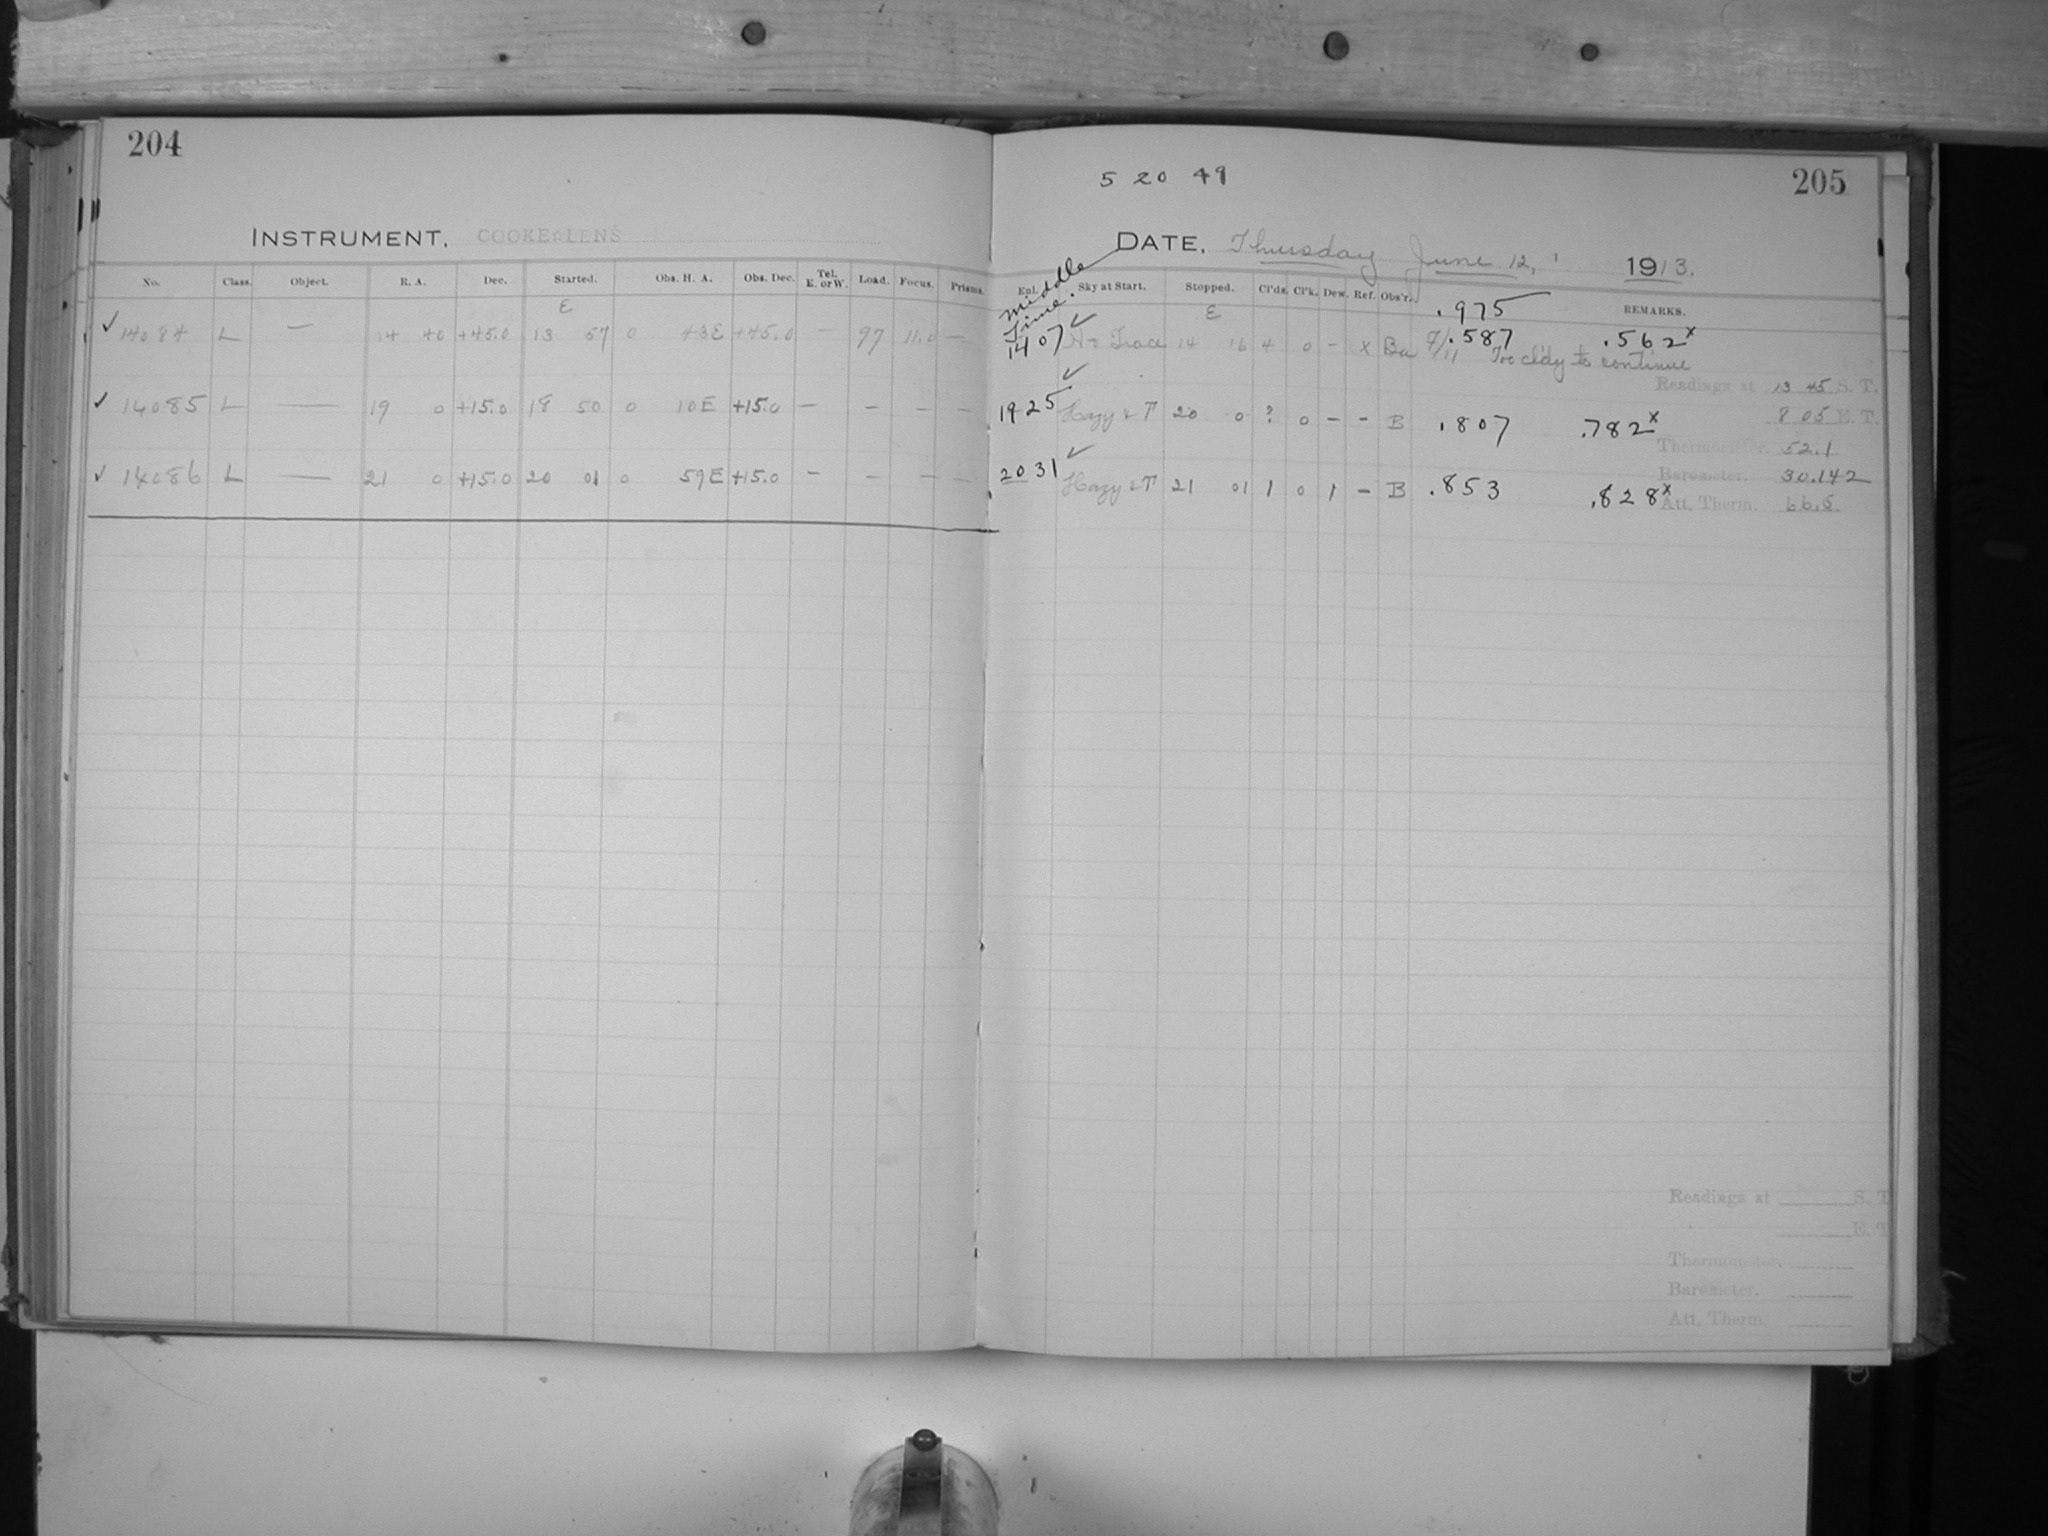 204
INSTRUMENT. COOKE LENS
No. Class. Object. R. A. Dec. Started. Obs. H. A. Obs. Dec. Tel. E. or W. Load. Focus. Prisms.
E
✓ 14084 L — 14 40 +45.0 13 57 0 43E +45.0 — 97 11.0 —
✓ 14085 L — 19 0 +15.0 18 50 0 10E +15.0 — — — —
✓ 14086 L — 21 0 +15.0 20 01 0 59E +15.0 — — — —
5 20 49
205
DATE. Thursday June 12, 1913.
Enl. Sky at Start. Stopped. Cl'ds. Cl'k. Dew. Ref. Obs'r. REMARKS.
Middle Time.
E
.975
1407 ✓ Trace 14 16 4 0 — x Bu .587 .562x
Too cl'dy to continue
Readings at 13 45 S. T.
8 05 E. T.
1925 ✓ Hazy & T 20 0 ? 0 — — B .807 .782x
Thermometer. 52.1
Barometer. 30.142
2031 ✓ Hazy & T 21 01 1 0 1 — B .853 .828x
Att. Therm. 66.5
Readings at S. T.
E. T.
Thermometer.
Barometer.
Att. Therm.